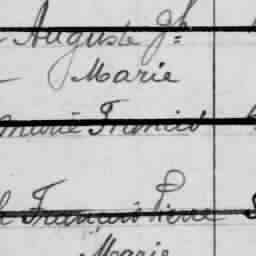 Auguste Jh
Marie
Marie Francis
François Pierre
Marie